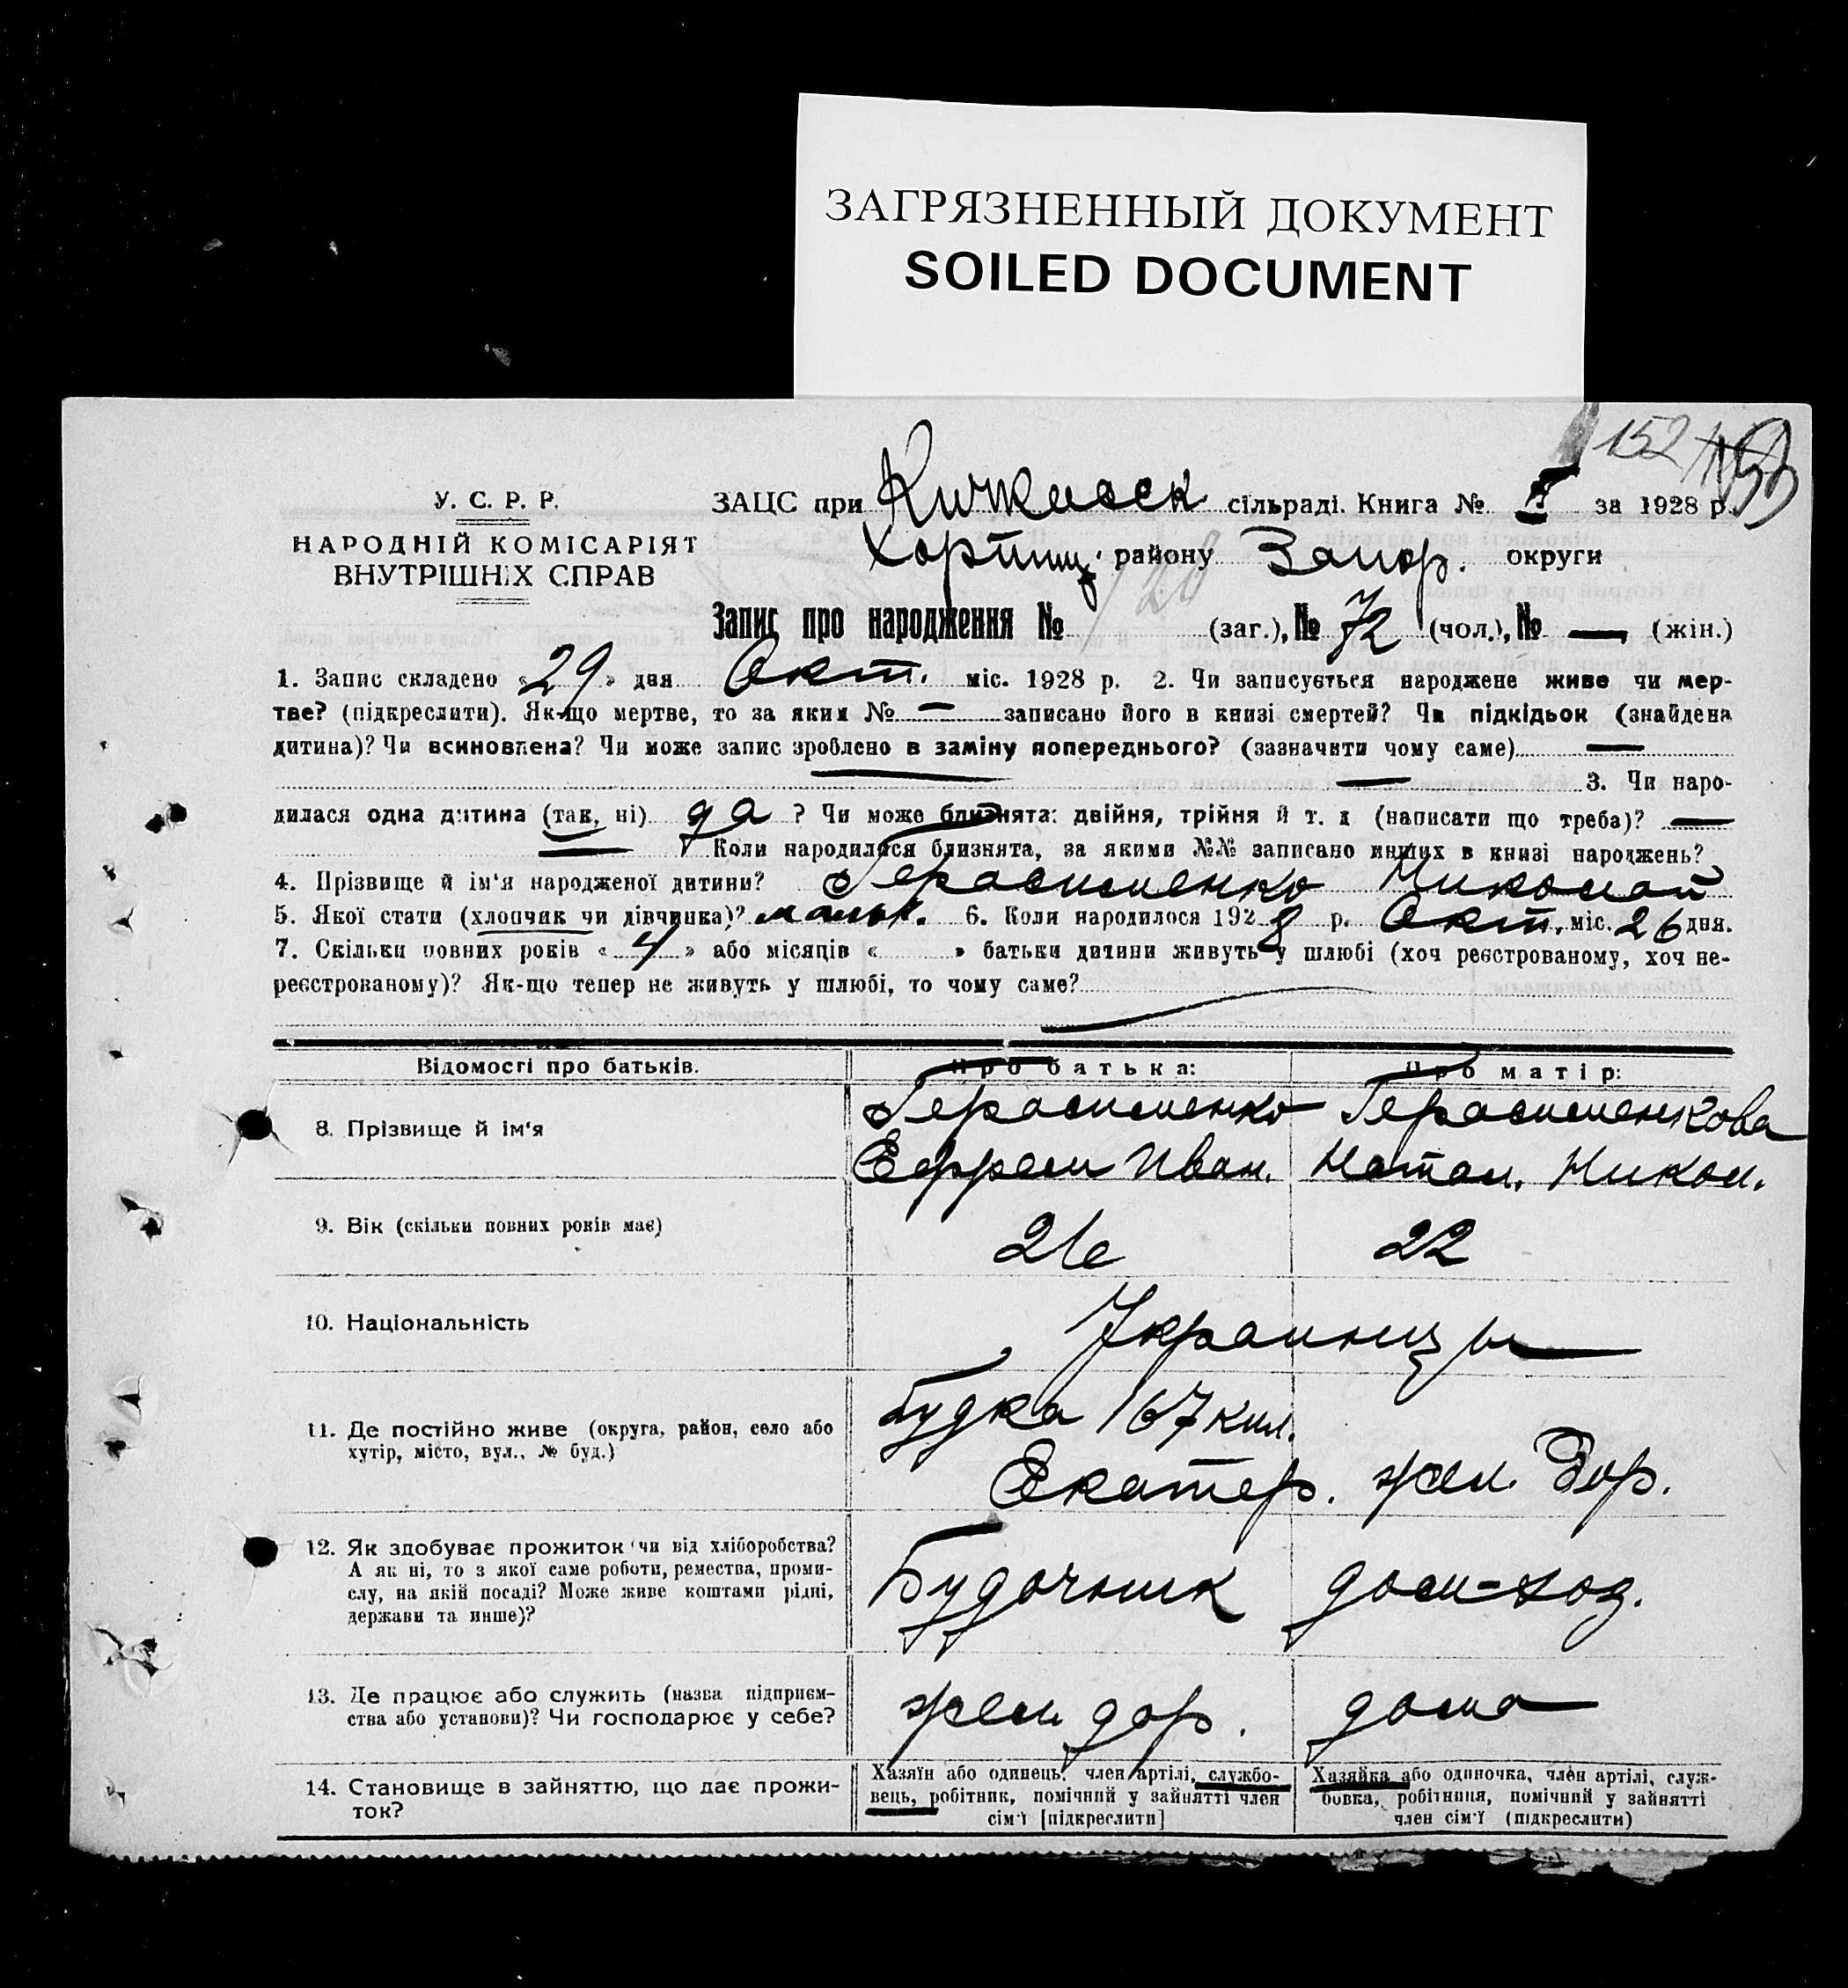 ЗАГРЯЗНЕННЫЙ ДОКУМЕНТ
SOILED DOCUMENT
152
У. С. Р. Р.
НАРОДНІЙ КОМІСАРІЯТ
ВНУТРІШНІХ СПРАВ
ЗАЦС при Кичкасск. сільраді. Книга № за 1928 р.
Хортиц. району Запор. округи
Запис про народження № (заг.), № 72 (чол.), № — (жін.)
1. Запис складено «29» дня Окт. міс. 1928 р. 2. Чи записується народжене живе чи мер-
тве? (підкреслити). Як-що мертве, то за яким № — записано його в книзі смертей? Чи підкідьок (знайдена
дитина)? Чи всиновлена? Чи може запис зроблено в заміну попереднього? (зазначити чому саме) —
— 3. Чи наро-
дилася одна дитина (так, ні) да ? Чи може близнята: двійня, трійня й т. д (написати що треба)? —
— Коли народилися близнята, за якими №№ записано инших в книзі народжень?
4. Прізвище й ім'я народженої дитини? Герасименко Николай
5. Якої стати (хлопчик чи дівчинка)? мальч. 6. Коли народилося 1928 р. Окт. міс. 26 дня.
7. Скільки повних років «4» або місяців « » батьки дитини живуть у шлюбі (хоч реєстрованому, хоч не-
реєстрованому)? Як-що тепер не живуть у шлюбі, то чому саме?
Відомості про батьків. Про батька: Про матір:
8. Прізвище й ім'я Герасименко Герасименкова
Ефрем Иван. Натал. Никол.
9. Вік (скільки повних років має) 26 22
10. Національність Украинцы
11. Де постійно живе (округа, район, село або
хутір, місто, вул., № буд.)
Будка 167 кил.
Екатер. жел. дор.
12. Як здобуває прожиток чи від хліборобства?
А як ні, то з якої саме роботи, ремества, проми-
слу, на якій посаді? Може живе коштами рідні,
держави та инше)?
Будочник дом-хоз.
13. Де працює або служить (назва підприєм-
ства або установи)? Чи господарює у себе?
жел дор. дома
14. Становище в зайняттю, що дає прожи-
ток?
Хазяїн або одинець, член артілі, службо-
вець, робітник, помічний у зайнятті член
сім'ї [підкреслити]
Хазяйка або одиночка, член артілі, служ-
бовка, робітниця, помічний у зайнятті
член сім'ї (підкреслити)